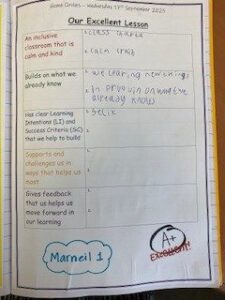 Home Circles - Wednesday 17th September 2025
Our Excellent Lesson
An inclusive
classroom that is
calm and kind
1. class
2. calm
Builds on what we
already know
1. we learing new things
2.
already know
Has clear Learning
Intentions (LI) and
Success Criteria (SC)
that we help to build
1.
2.
Supports and
challenges us in
ways that helps us
most
1.
2.
Gives feedback
that us helps us
move forward in
our learning
1.
2.
Marneil 1
A+
EXCELLENT!